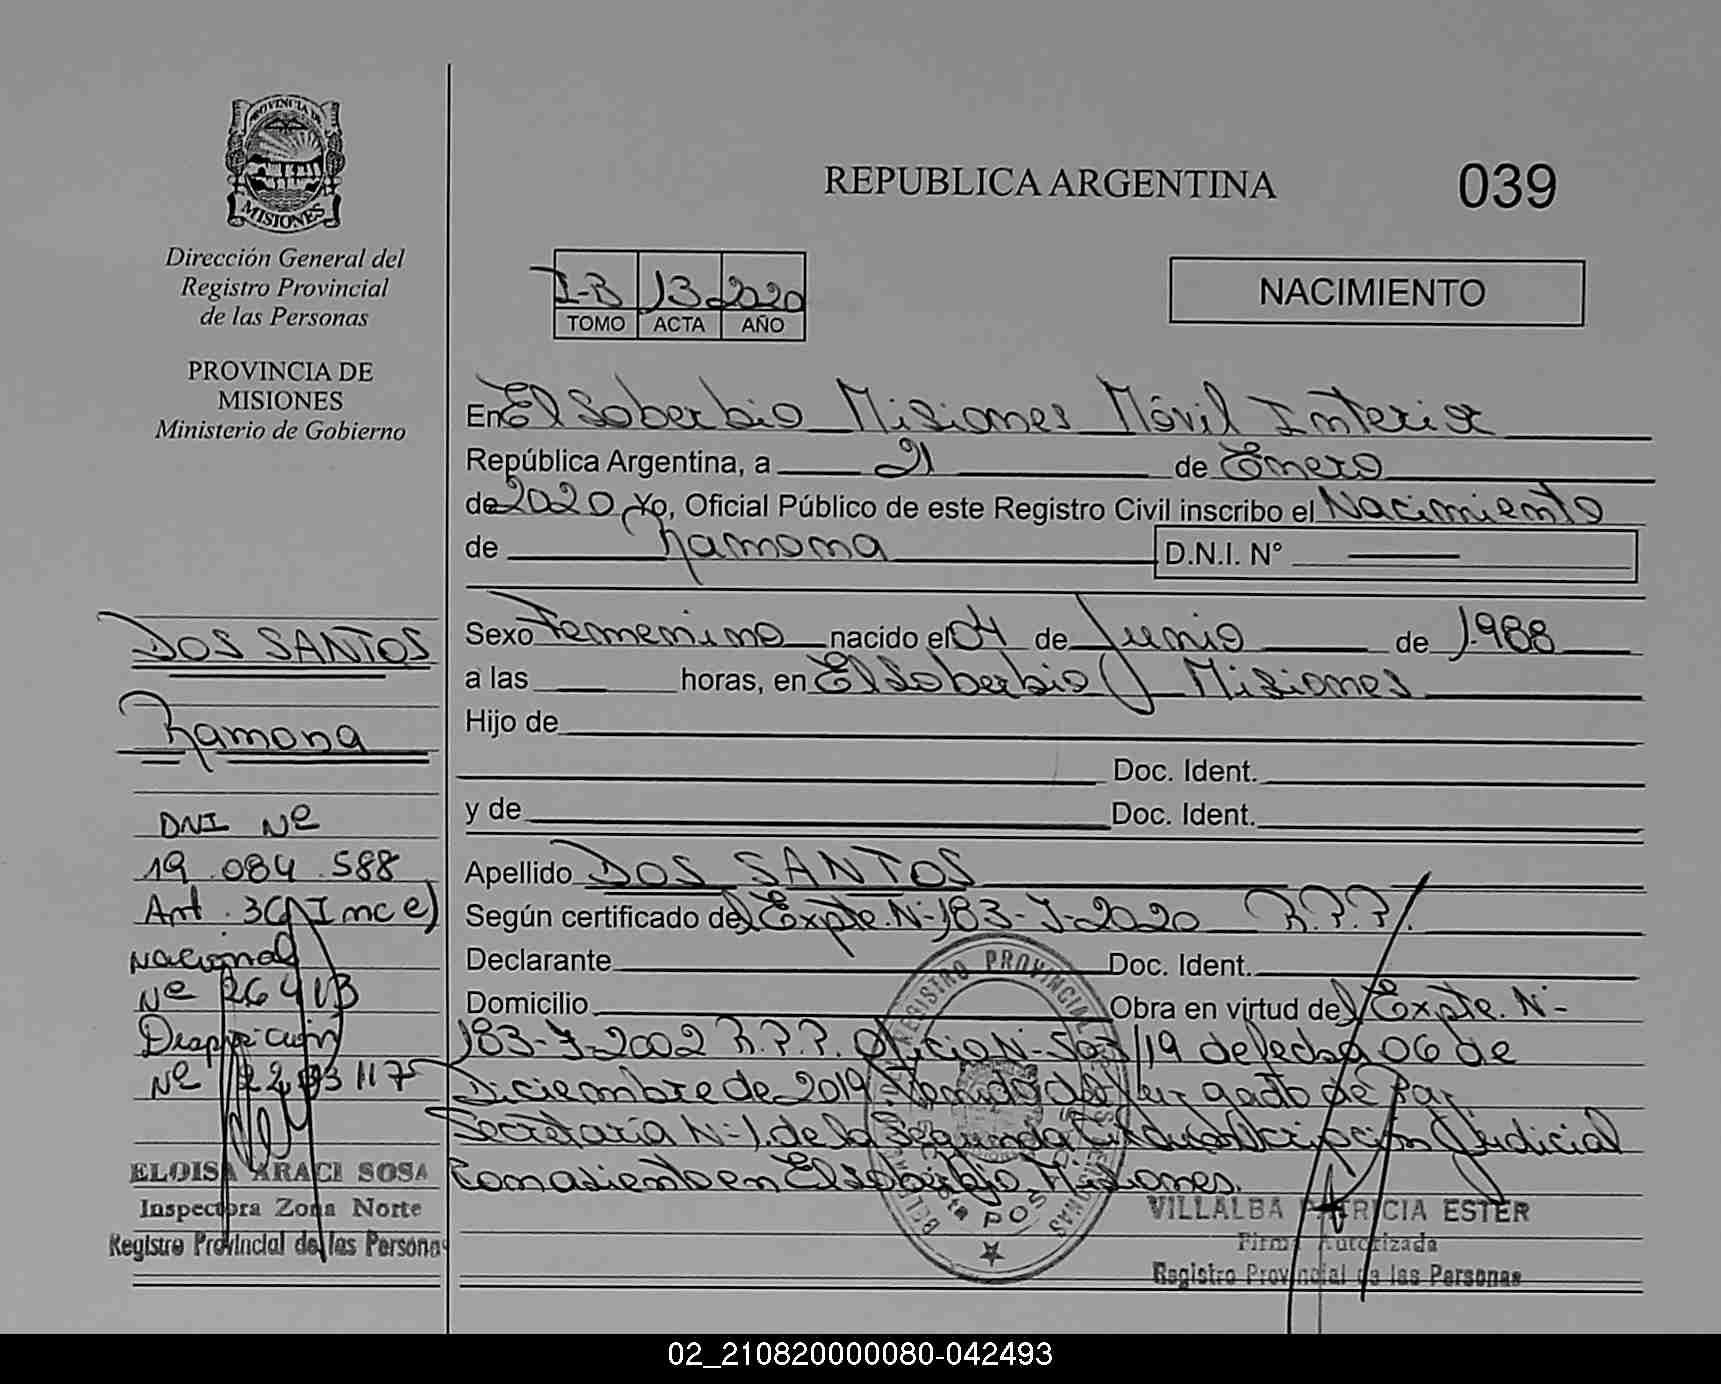 PROVINCIA DE
MISIONES
Dirección General del
Registro Provincial
de las Personas
PROVINCIA DE
MISIONES
Ministerio de Gobierno
DOS SANTOS
Ramona
DNI Nº
19.084.588
Art. 36 Inc e)
Nacional
Nº 26413
Disposición
Nº 117
ELOISA ARACI SOSA
Inspectora Zona Norte
Registro Provincial de las Personas
REPUBLICA ARGENTINA
039
I-B 13 2020
TOMO ACTA AÑO
NACIMIENTO
En El Soberbio Misiones Móvil Interior
República Argentina, a 21 de Enero
de 2020 Yo, Oficial Público de este Registro Civil inscribo el Nacimiento
de Ramona D.N.I. N°
Sexo Femenino nacido el 04 de Junio de 1.988
a las horas, en El Soberbio Misiones
Hijo de
Doc. Ident.
y de Doc. Ident.
Apellido DOS SANTOS
Según certificado del Expte. N-183-J-2020 R.P.P.
Declarante Doc. Ident.
Domicilio Obra en virtud del Expte. N-
183-J-2002 R.P.P. Oficio N- /19 de fecha 06 de
Diciembre de 2019 del Juzgado de Paz
Secretaría N-1. de la Segunda Circunscripción Judicial
con asiento en El Soberbio Misiones.
REGISTRO PROVINCIAL
VILLALBA PATRICIA ESTER
Firma Autorizada
Registro Provincial de las Personas
02_210820000080-042493